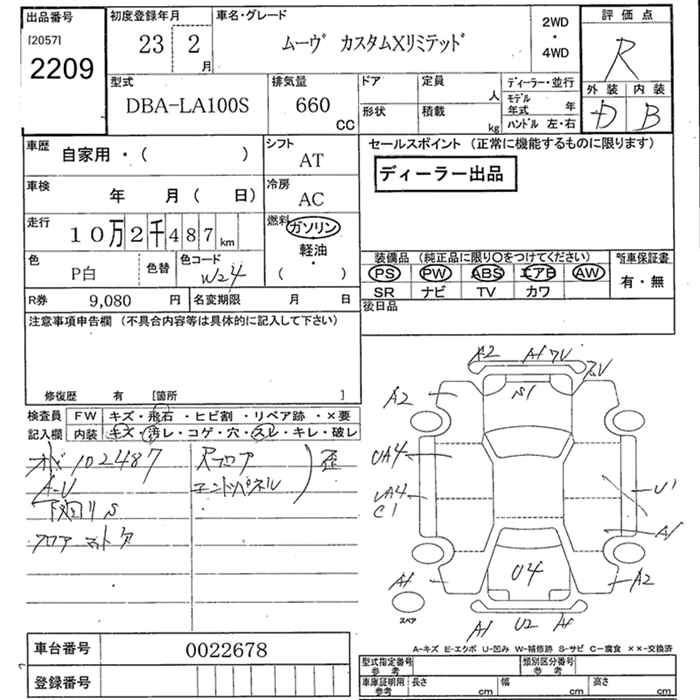 出品番号
[2057]
2209
初度登録年月
23 2
月
車名・グレード
ムーヴ カスタムXリミテッド
2WD
・
4WD
評価点
R
外装 内装
D B
型式
DBA-LA100S
排気量
660
CC
ドア
形状
定員
人
積載
kg
ディーラー・並行
モデル年式 年
ハンドル 左・右
車歴
自家用・( )
シフト
AT
車検
年 月( 日)
冷房
AC
走行
10万2千487 km
燃料
ガソリン
軽油
・
( )
色
P白
色替
色コード
W24
R券 9,080 円
名変期限 月 日
セールスポイント (正常に機能するものに限ります)
ディーラー出品
装備品 (純正品に限り○をつけてください)
PS PW ABS エアB AW
SR ナビ TV カワ
新車保証書
有・無
後日品
注意事項申告欄 (不具合内容等は具体的に記入して下さい)
修復歴 有 [箇所 ]
検査員 FW キズ・飛石・ヒビ割・リペア跡・×要
記入欄 内装 キズ・汚レ・コゲ・穴・スレ・キレ・破レ
102487
A-U
下廻りS
フロアマット
Rフロア
エンドパネル
歪
A2 A1
A2
S1
UA4
UA4
C1
U1
A1
U4
A1
A2
A1 U2 A1
スペア
A-キズ E-エクボ U-凹み W-補修跡 S-サビ C-腐食 ××-交換済
車台番号 0022678
登録番号
型式指定番号
参考
類別区分番号
参考
車庫証明用
参考
長さ cm
幅 cm
高さ cm